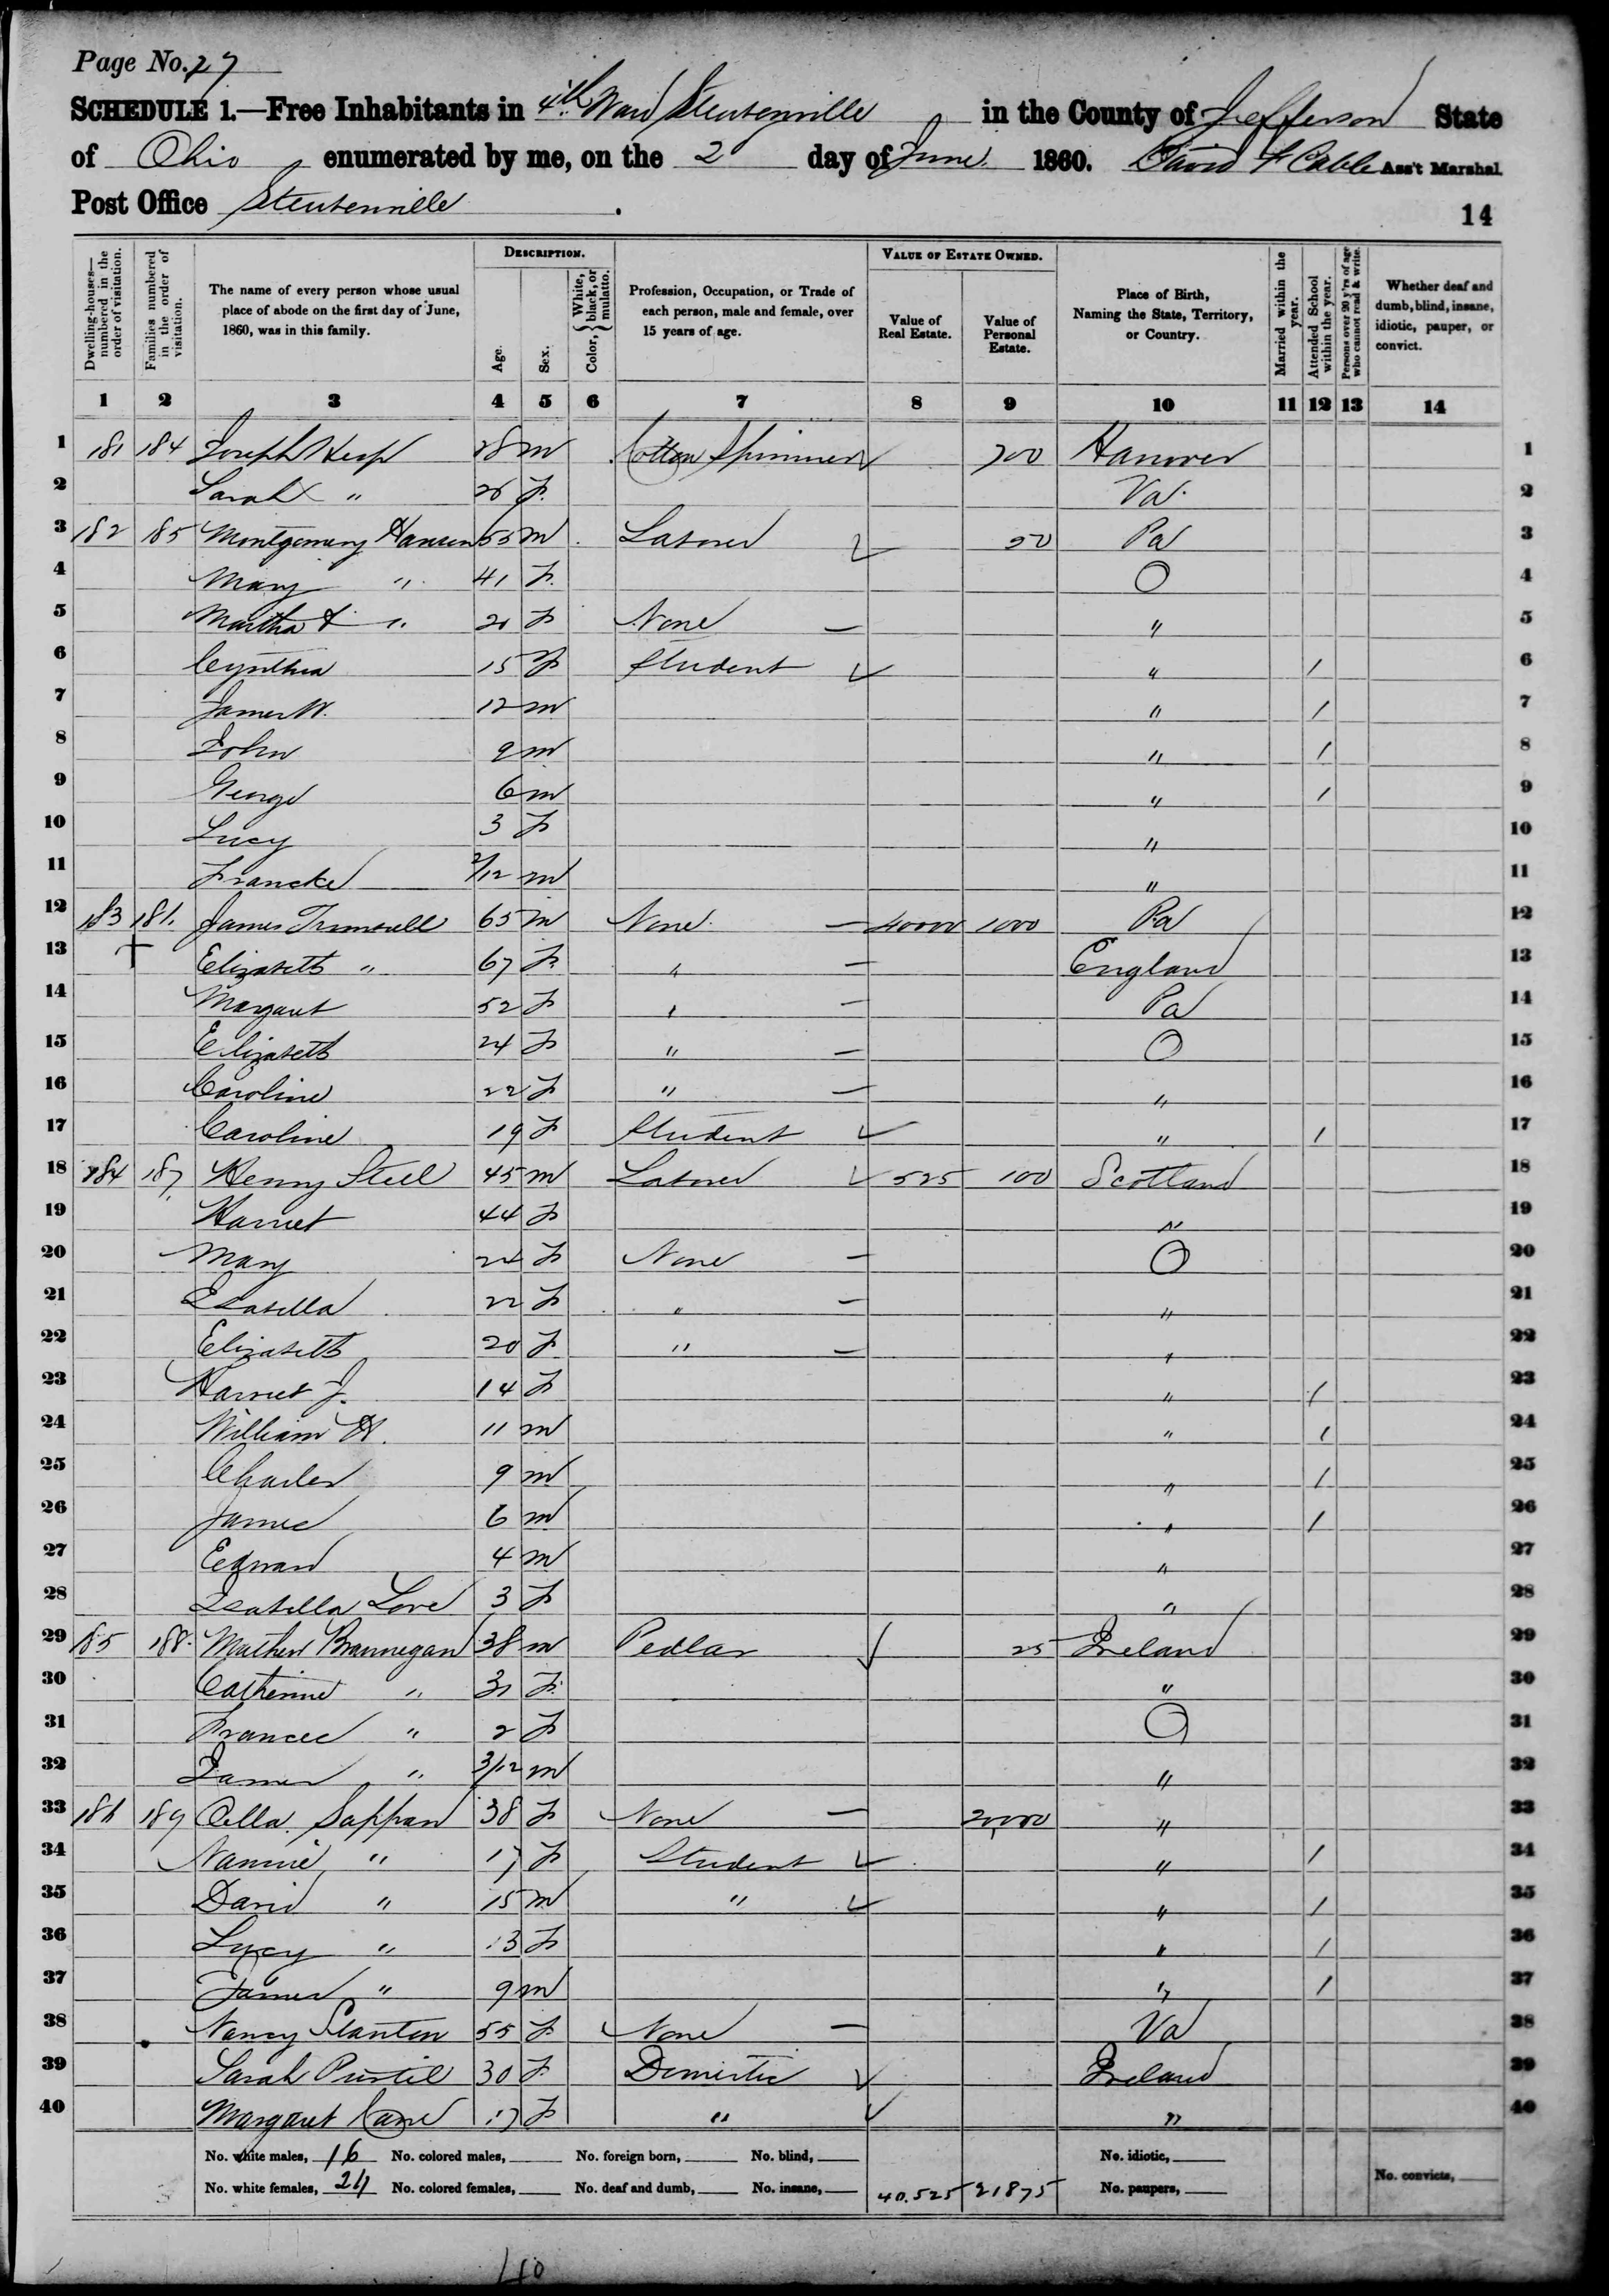 Page No. 27
SCHEDULE 1.—Free Inhabitants in 4th Ward Steubenville in the County of Jefferson State
of Ohio enumerated by me, on the 2 day of June 1860. David F Cable Ass't Marshal.
Post Office Steubenville . 14
DESCRIPTION. VALUE OF ESTATE OWNED.
Dwelling-houses—numbered in the order of visitation. Families numbered in the order of visitation. The name of every person whose usual place of abode on the first day of June, 1860, was in this family. Age. Sex. Color, { White, black, or mulatto. Profession, Occupation, or Trade of each person, male and female, over 15 years of age. Value of Real Estate. Value of Personal Estate. Place of Birth, Naming the State, Territory, or Country. Married within the year. Attended School within the year. Persons over 20 y'rs of age who cannot read & write. Whether deaf and dumb, blind, insane, idiotic, pauper, or convict.
1 2 3 4 5 6 7 8 9 10 11 12 13 14
1 181 184 Joseph 28 m Cotton Spinner 700 Hanover 1
2 Sarah " 26 f. Va. 2
3 182 185 Montgomery 55 m Laborer 50 Pa 3
4 Mary " 41 f. O 4
5 Martha " 20 f None — " 5
6 Cynthia 15 f Student " / 6
7 James W. 12 m " / 7
8 John 9 m " / 8
9 George 6 m " / 9
10 Lucy 3 f " 10
11 2/12 m " 11
12 183 186 James 65 m None — 40000 1000 Pa 12
13 + Elizabeth " 67 f. " — England 13
14 Margaret 52 f " — Pa 14
15 Elizabeth 24 f " — O 15
16 Caroline 22 f " — " 16
17 Caroline 19 f Student " / 17
18 184 187 Henry Steel 45 m Laborer 525 100 Scotland 18
19 Harriet 44 f " 19
20 Mary 24 f None — O 20
21 Isabella 22 f " — " 21
22 Elizabeth 20 f " — " 22
23 Harriet J. 14 f " / 23
24 William H. 11 m " / 24
25 Charles 9 m " / 25
26 James 6 m " / 26
27 Edward 4 m " 27
28 Isabella Love 3 f " 28
29 185 188 Mathew Brannegan 38 m Pedlar 25 Ireland 29
30 Catherine " 31 f. " 30
31 Frances " 2 f O 31
32 James " 3/12 m " 32
33 186 189 Sappan 38 f None — 20,000 " 33
34 Nannie " 17 f Student " / 34
35 David " 15 m " " / 35
36 Lucy " 13 f " / 36
37 James " 9 m " / 37
38 Nancy Stanton 55 f None — Va 38
39 Sarah 30 f Domestic Ireland 39
40 Margaret Cane 17 f " " 40
No. white males, 16 No. colored males, No. foreign born, No. blind, No. idiotic,
No. white females, 24 No. colored females, No. deaf and dumb, No. insane, 40.525 21875 No. paupers, No. convicts,
40